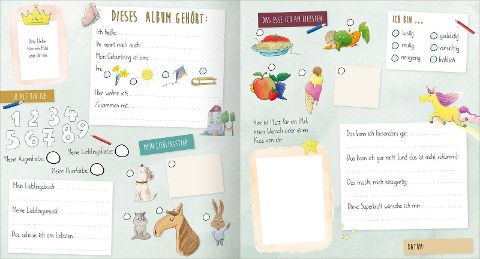 DIESES ALBUM GEHÖRT:
Ich heiße:
Ihr nennt mich auch:
Mein Geburtstag ist am:
Hier wohne ich:
Zusammen mit:
SO ALT BIN ICH
1 2 3 4
5 6 7 8 9
Meine Augenfarbe:
Meine Lieblingsfarbe:
Meine Haarfarbe:
MEIN LIEBLINGSTIER
Mein Lieblingsbuch:
Meine Lieblingsmusik:
Das schaue ich am liebsten:
DAS ESSE ICH AM LIEBSTEN:
ICH BIN ...
lustig
mutig
neugierig
geduldig
vorsichtig
fröhlich
Hier ist Platz für ein Bild,
einen Wunsch oder einen
Gruß von dir:
Das kann ich besonders gut:
Das kann ich gar nicht (und das ist nicht schlimm):
Das macht mich einzigartig:
Diese Superkraft wünsche ich mir:
DATUM: